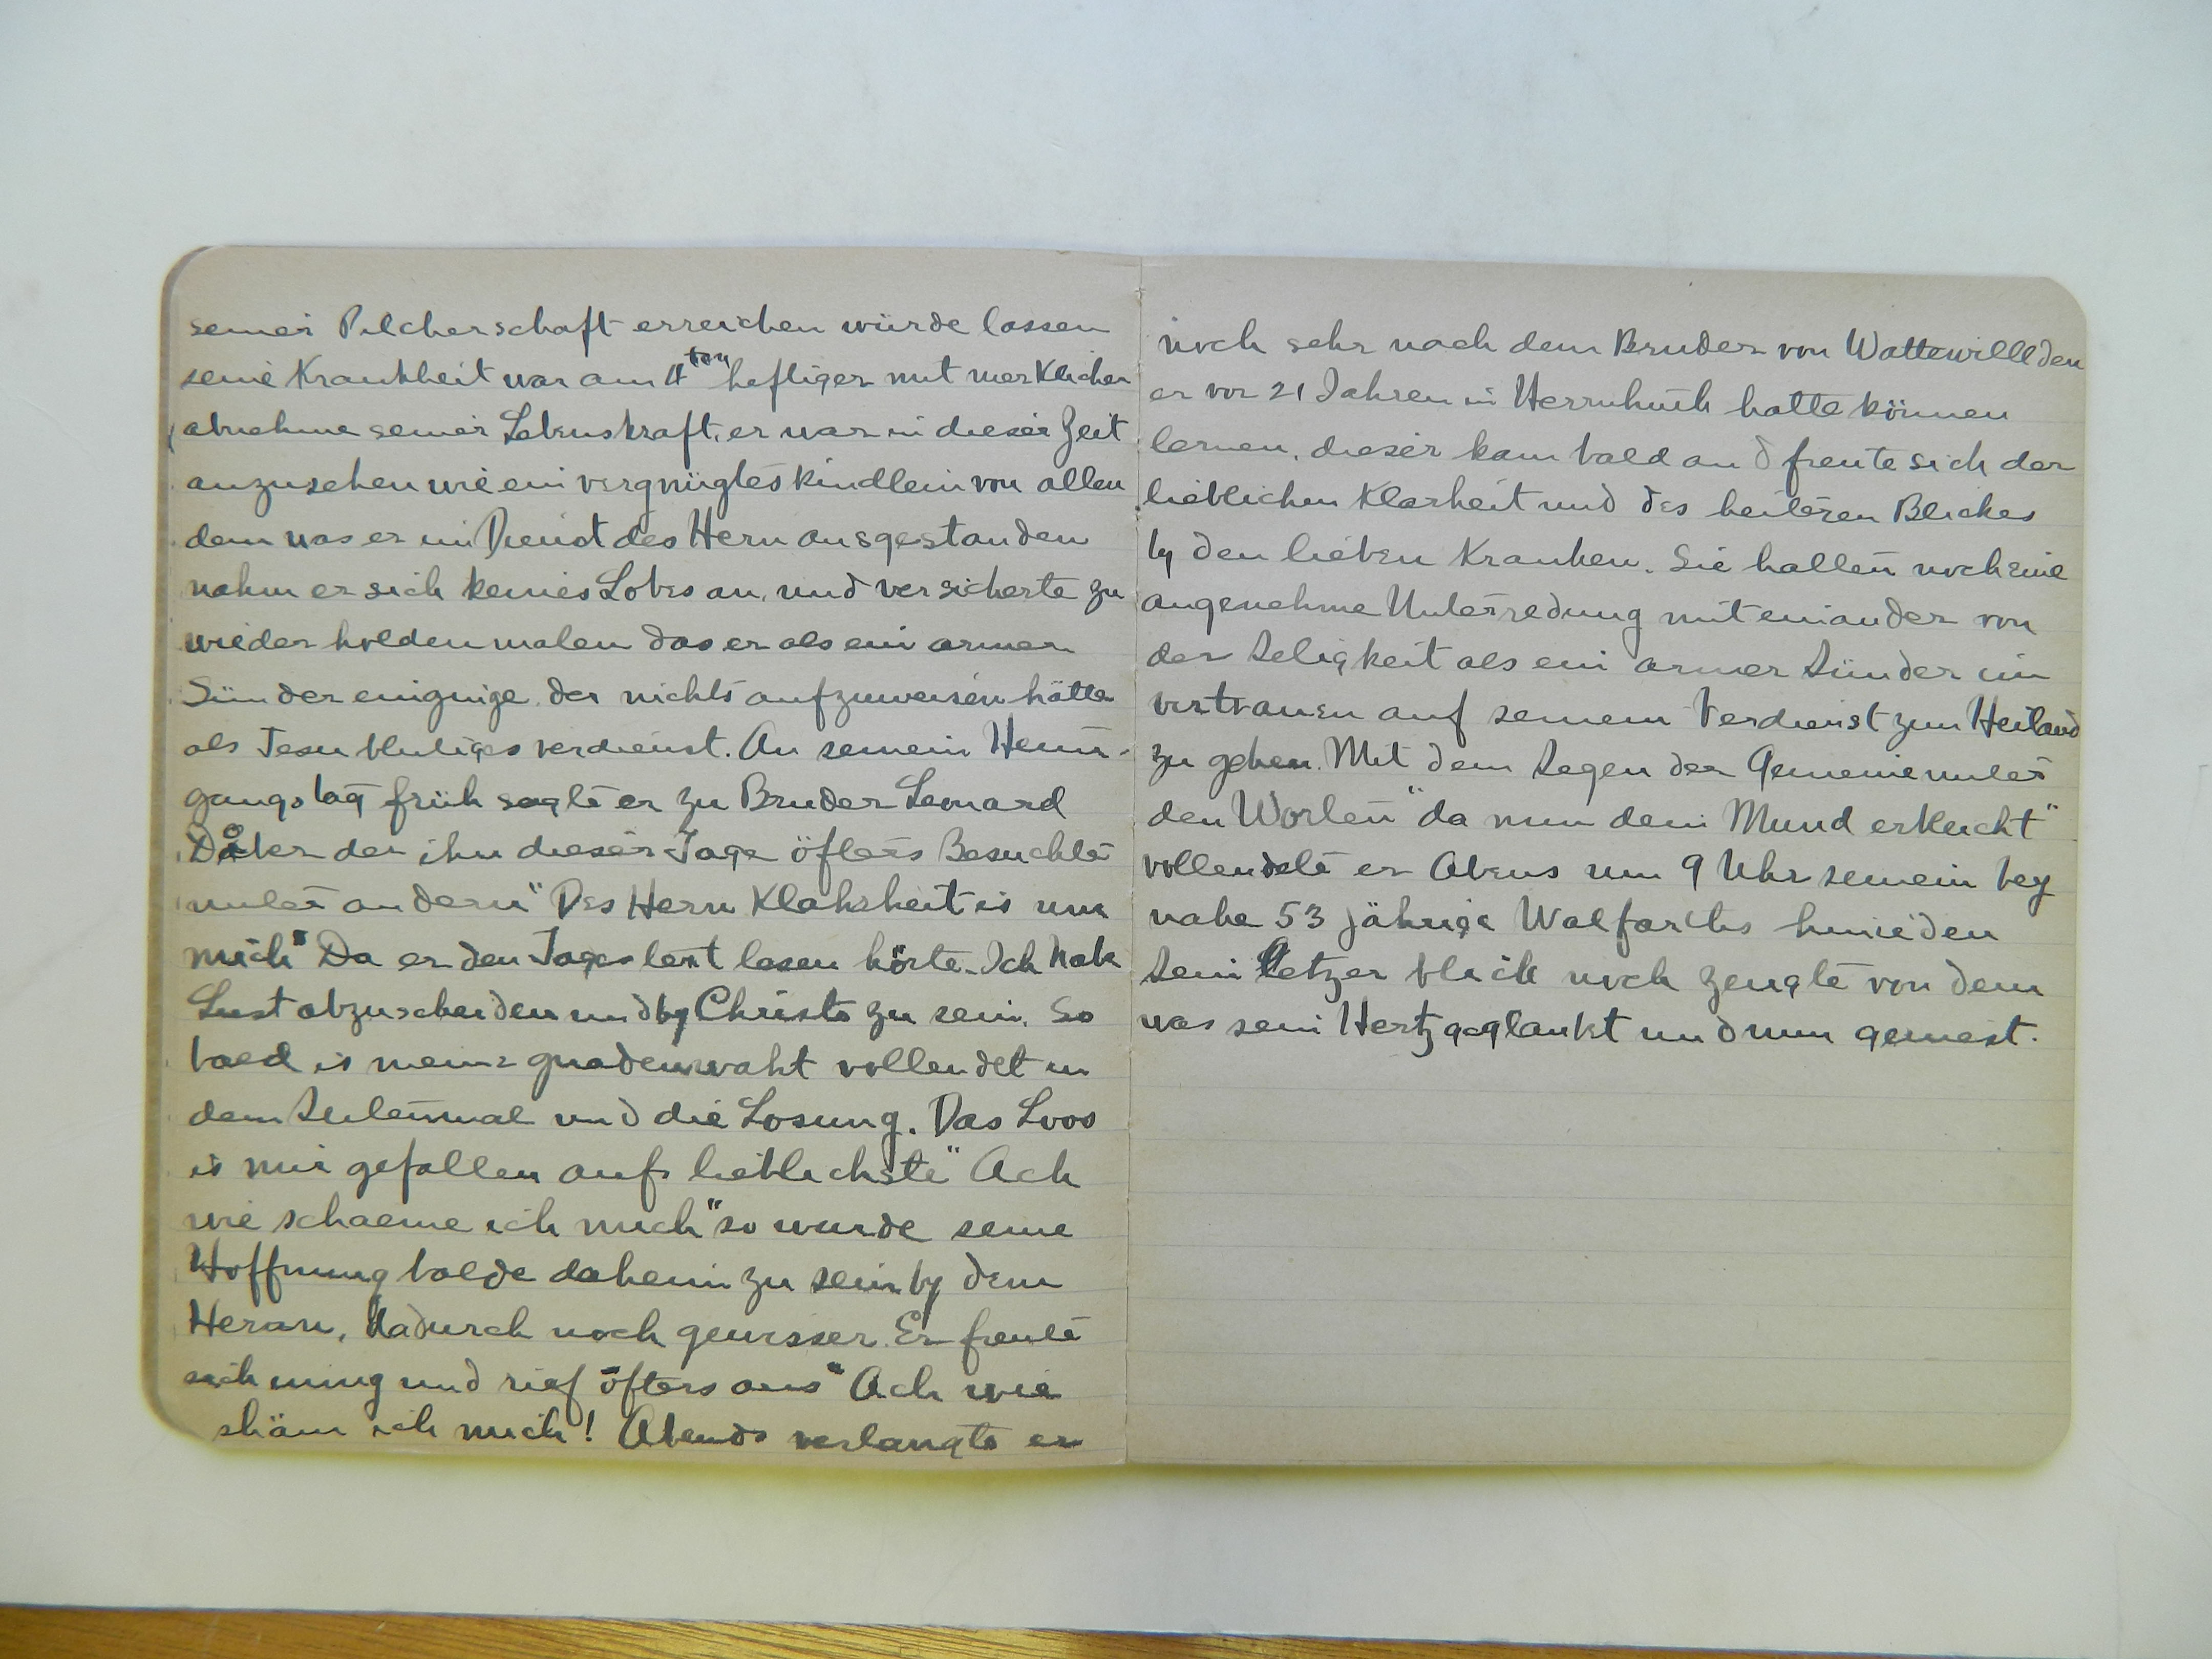 seiner Pilcherschaft erreichen würde lassen
seine Krankheit war am 11ten heftiger mit merklicher
abnehme seiner Lebenskraft, er war in dieser Zeit
anzusehen wie ein vergnügtes Kindlein von allen
dem was er im Dienst des Hern ausgestanden
nahm er sich keines Lobes an, und versicherte zu
wieder holden malen das er als ein armer
Sünder der nichts aufzuweisen hätte
als Jesu blutiges verdienst. An seinem Heim-
gangs tag früh sagte er zu Bruder Leonard
der ihn dieser Tage öfters Besuchte
unter andern "Des Hern Klahrheit is um
mich" Da er den Tages text lesen hörte. Ich habe
Lust abzuscheiden und by Christo zu sein. So
bald is meine vollendet in
dem und die Losung. Das Loos
is mir gefallen aufs lieblichste" Ach
wie schaeme ich mich" so wurde seine
Hoffnung balde daheim zu sein by dem
Heran, dadurch noch gewisser. Er freute
sich und rief öfters aus "Ach wie
shäm ich mich! Abends verlangte er
noch sehr nach dem Bruder von Wattewille den
er vor 21 Jahren in Herrnhuth hatte können
lernen, dieser kam bald an d freute sich der
lieblichen Klarheit und des heiteren Blickes
by den lieben Kranken. Sie hatten noch eine
angenehme Unterredung mit einander von
der Seligkeit als ein armer Sünder im
vertrauen auf seinem Verdienst zum Heiland
zu gehen. Mit dem Segen der Gemeine unter
den Worten "da nun dein Mund erbleicht"
vollendete er Abens um 9 Uhr seinem bey
nahe 53 jährige Walfarths hinieden
Sein letzer blick noch zeugte von dem
was sein Hertz geglaubt und nun geniest.